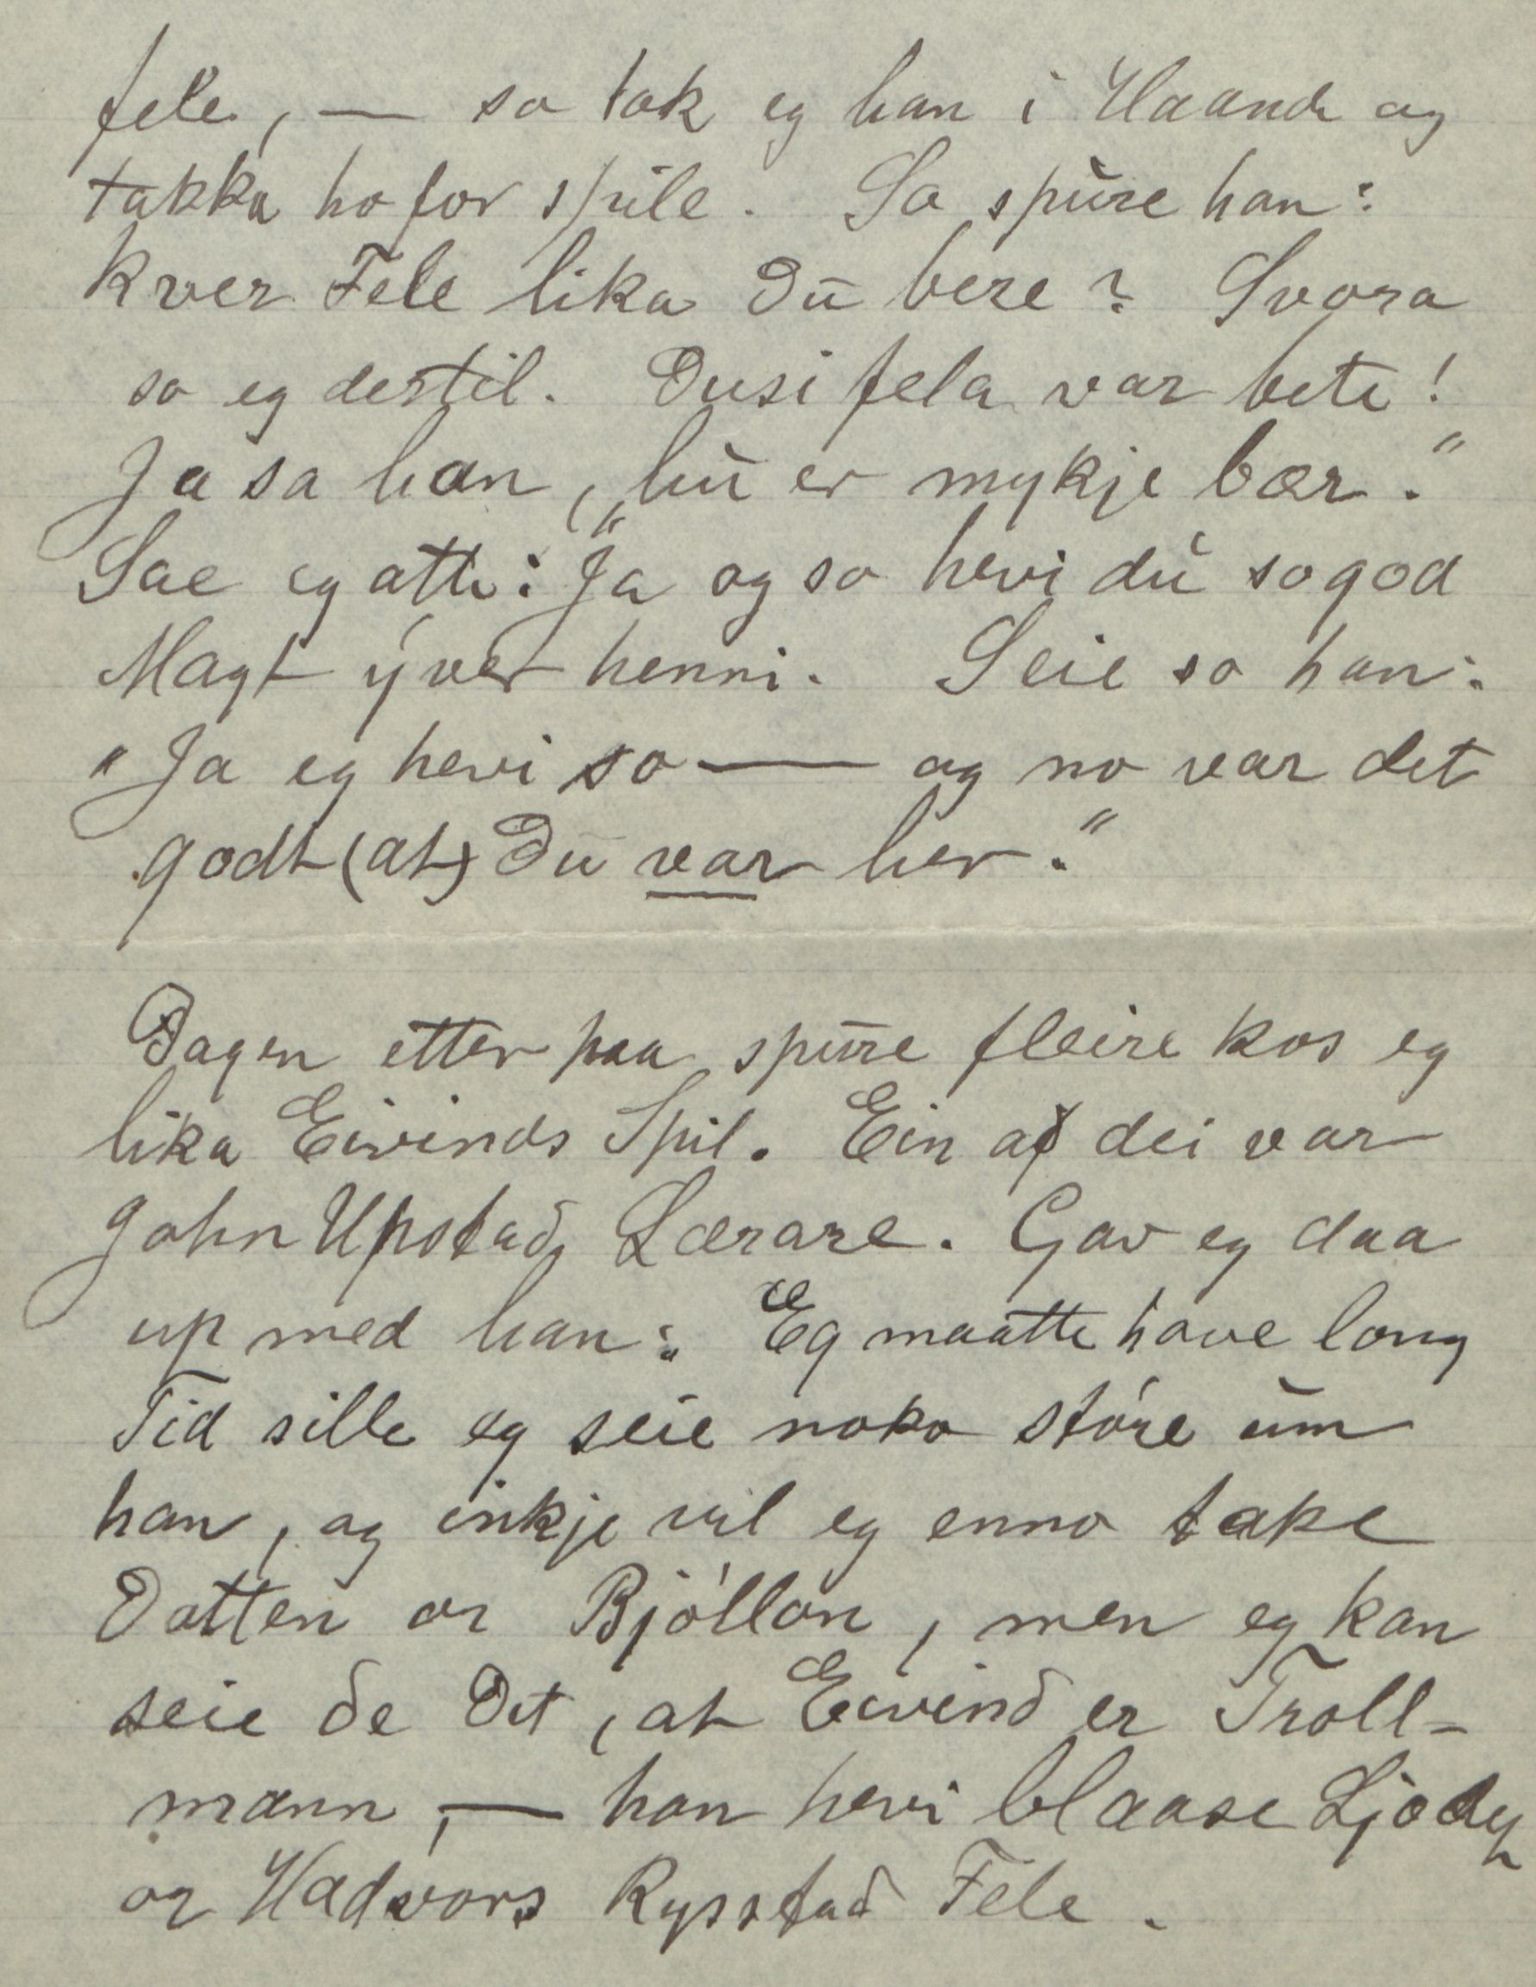 fele, — so tok eg han i Haande og
takka ho for spile. So spùre han:
Kver Fele lika Dū bere? Svora
so eg dertil. Dusi fela var bete!
Ja sa han, „hù er mykje bær."
Sae eg atte: Ja og so hevi dù so god
Magt ýver henni. Seie so han:
"Ja eg hevi so — og no var det
godt (at) Dū var her."
Dagen etter paa spūre fleire kos eg
lika Eivinds Spil. Ein af dei var
John Upstad, Lærare. Gav eg daa
up med han: Eg maatte have long
Tid sille eg seie noko stóre ùm
han, og inkje vil eg enno take
Dotten or Bjóllon, men eg kan
seie de Det, at Eivind er Troll-
mann, — han hevi blaase Ljode
or Hadvors Rysstad Fele.